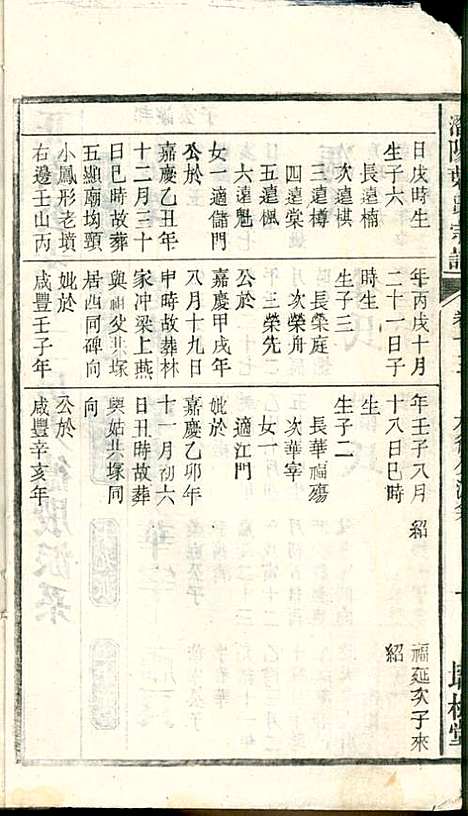 日戌時生
生子六
長遠楠
次遠棋
三遠樽
四遠棠
五遠楓
六遠魁
女一適儲門
公於
嘉慶乙丑年
十二月三十
日巳時故葬
五顯廟坳頸
小鳳形老墳
右邊壬山丙
年丙戌十月
二十一日子
時生
生子三
長榮庭
次榮舟
三榮先
公於
嘉慶甲戌年
八月十九日
申時故葬林
家冲梁上燕
與祖父共塚
居西同碑向
妣於
咸豐壬子年
年壬子八月
十八日巳時
生
生子二
長華福殤
次華宰
女一
適江門
妣於
嘉慶乙卯年
十一月初六
日丑時故葬
與姑共塚同
向
公於
咸豐辛亥年
紹
福延次子來
紹